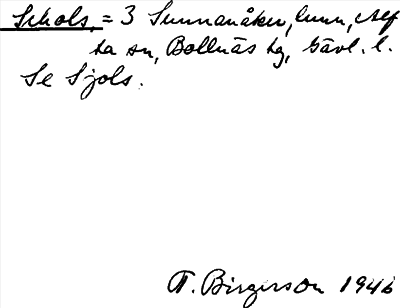 Schols, = 3 Sunnanåker, lunn, Alf
ta sn, Bollnäs tg, Gävl. l.
Se Sjols.
T. Birgerson 1946